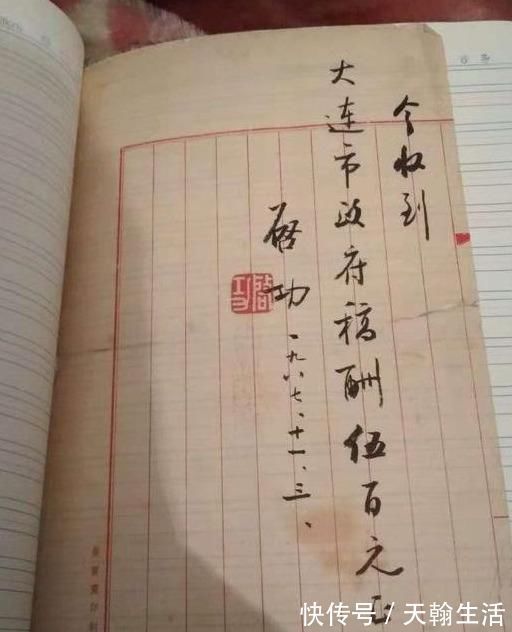 今收到
大连市政府稿酬伍百元正
启功
一九八七、十一、三、
启功
快传号 / 天翰生活